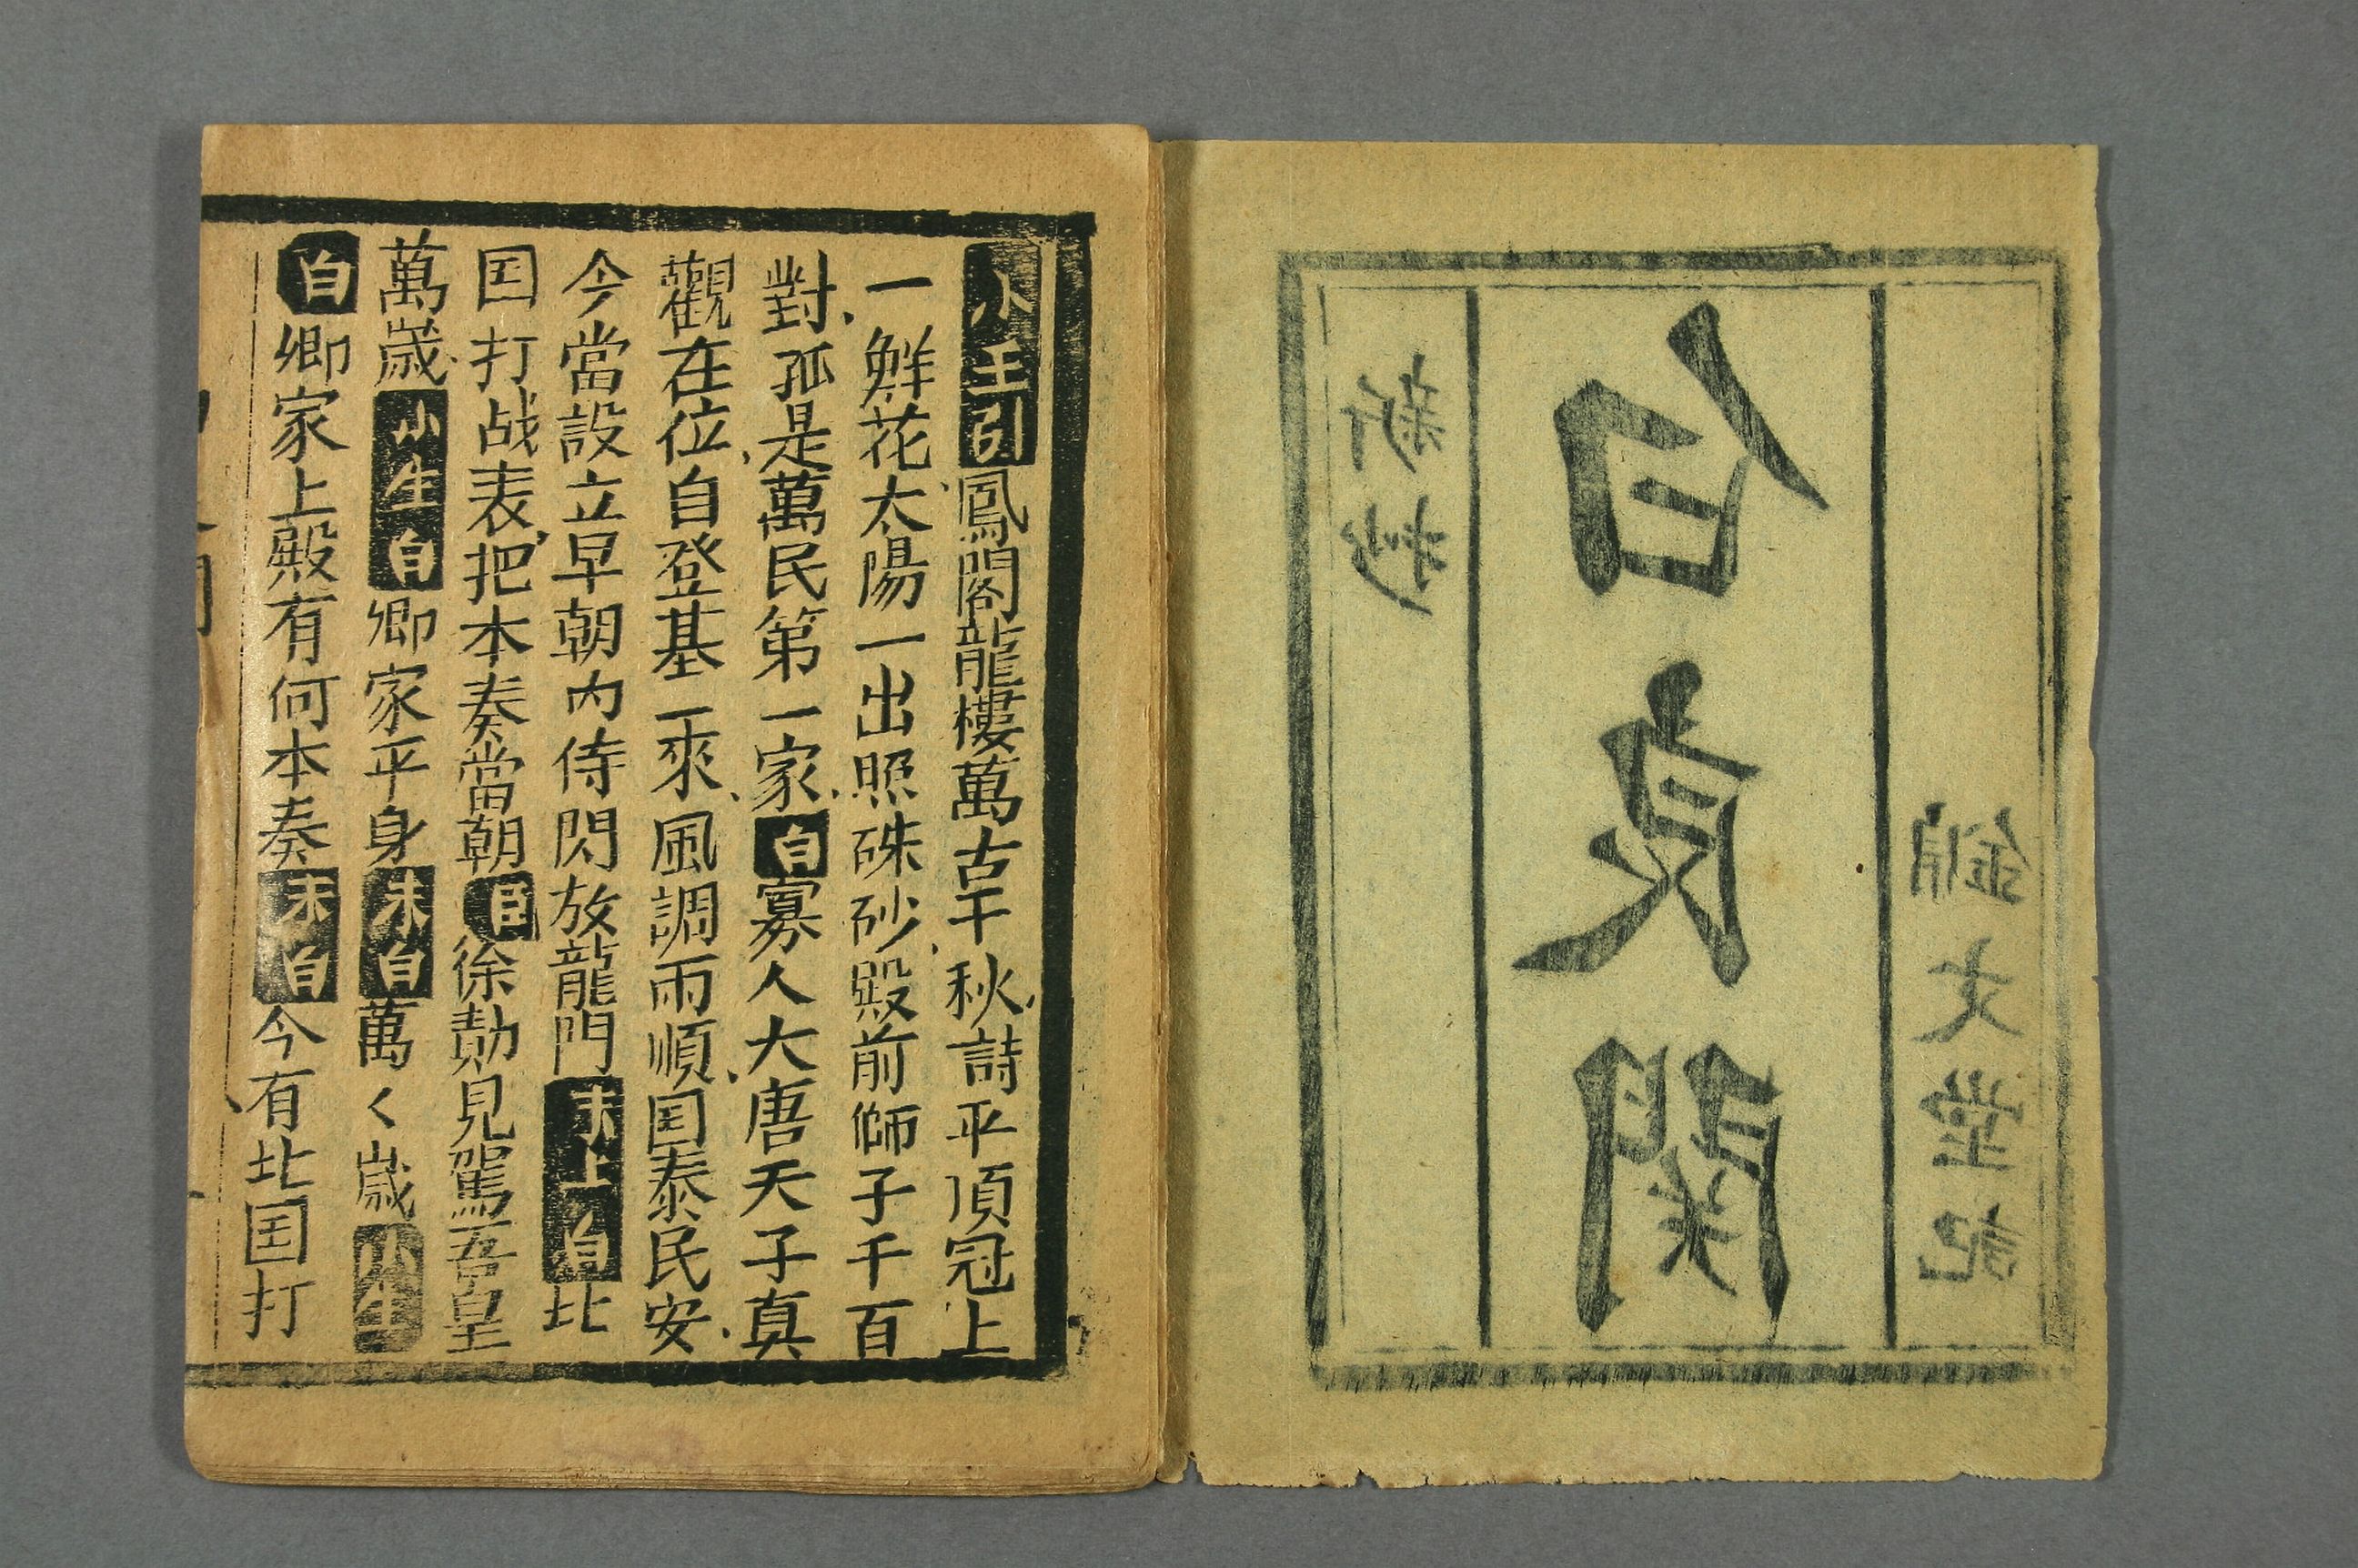 文堂記
白良關
新抄
小生引鳳閣龍樓萬古千秋詩平頂冠上
一鮮花太陽一出照硃砂殿前獅子千百
對孤是萬民第一家白寡人大唐天子真
觀在位自登基一來風調雨順国泰民安
今當設立早朝内侍閃放龍門末上白北
国打战表把本奏當朝臣徐勣見駕吾皇
萬歲小生白卿家平身末白萬く歲小生
白卿家上殿有何本奏末白今有北国打